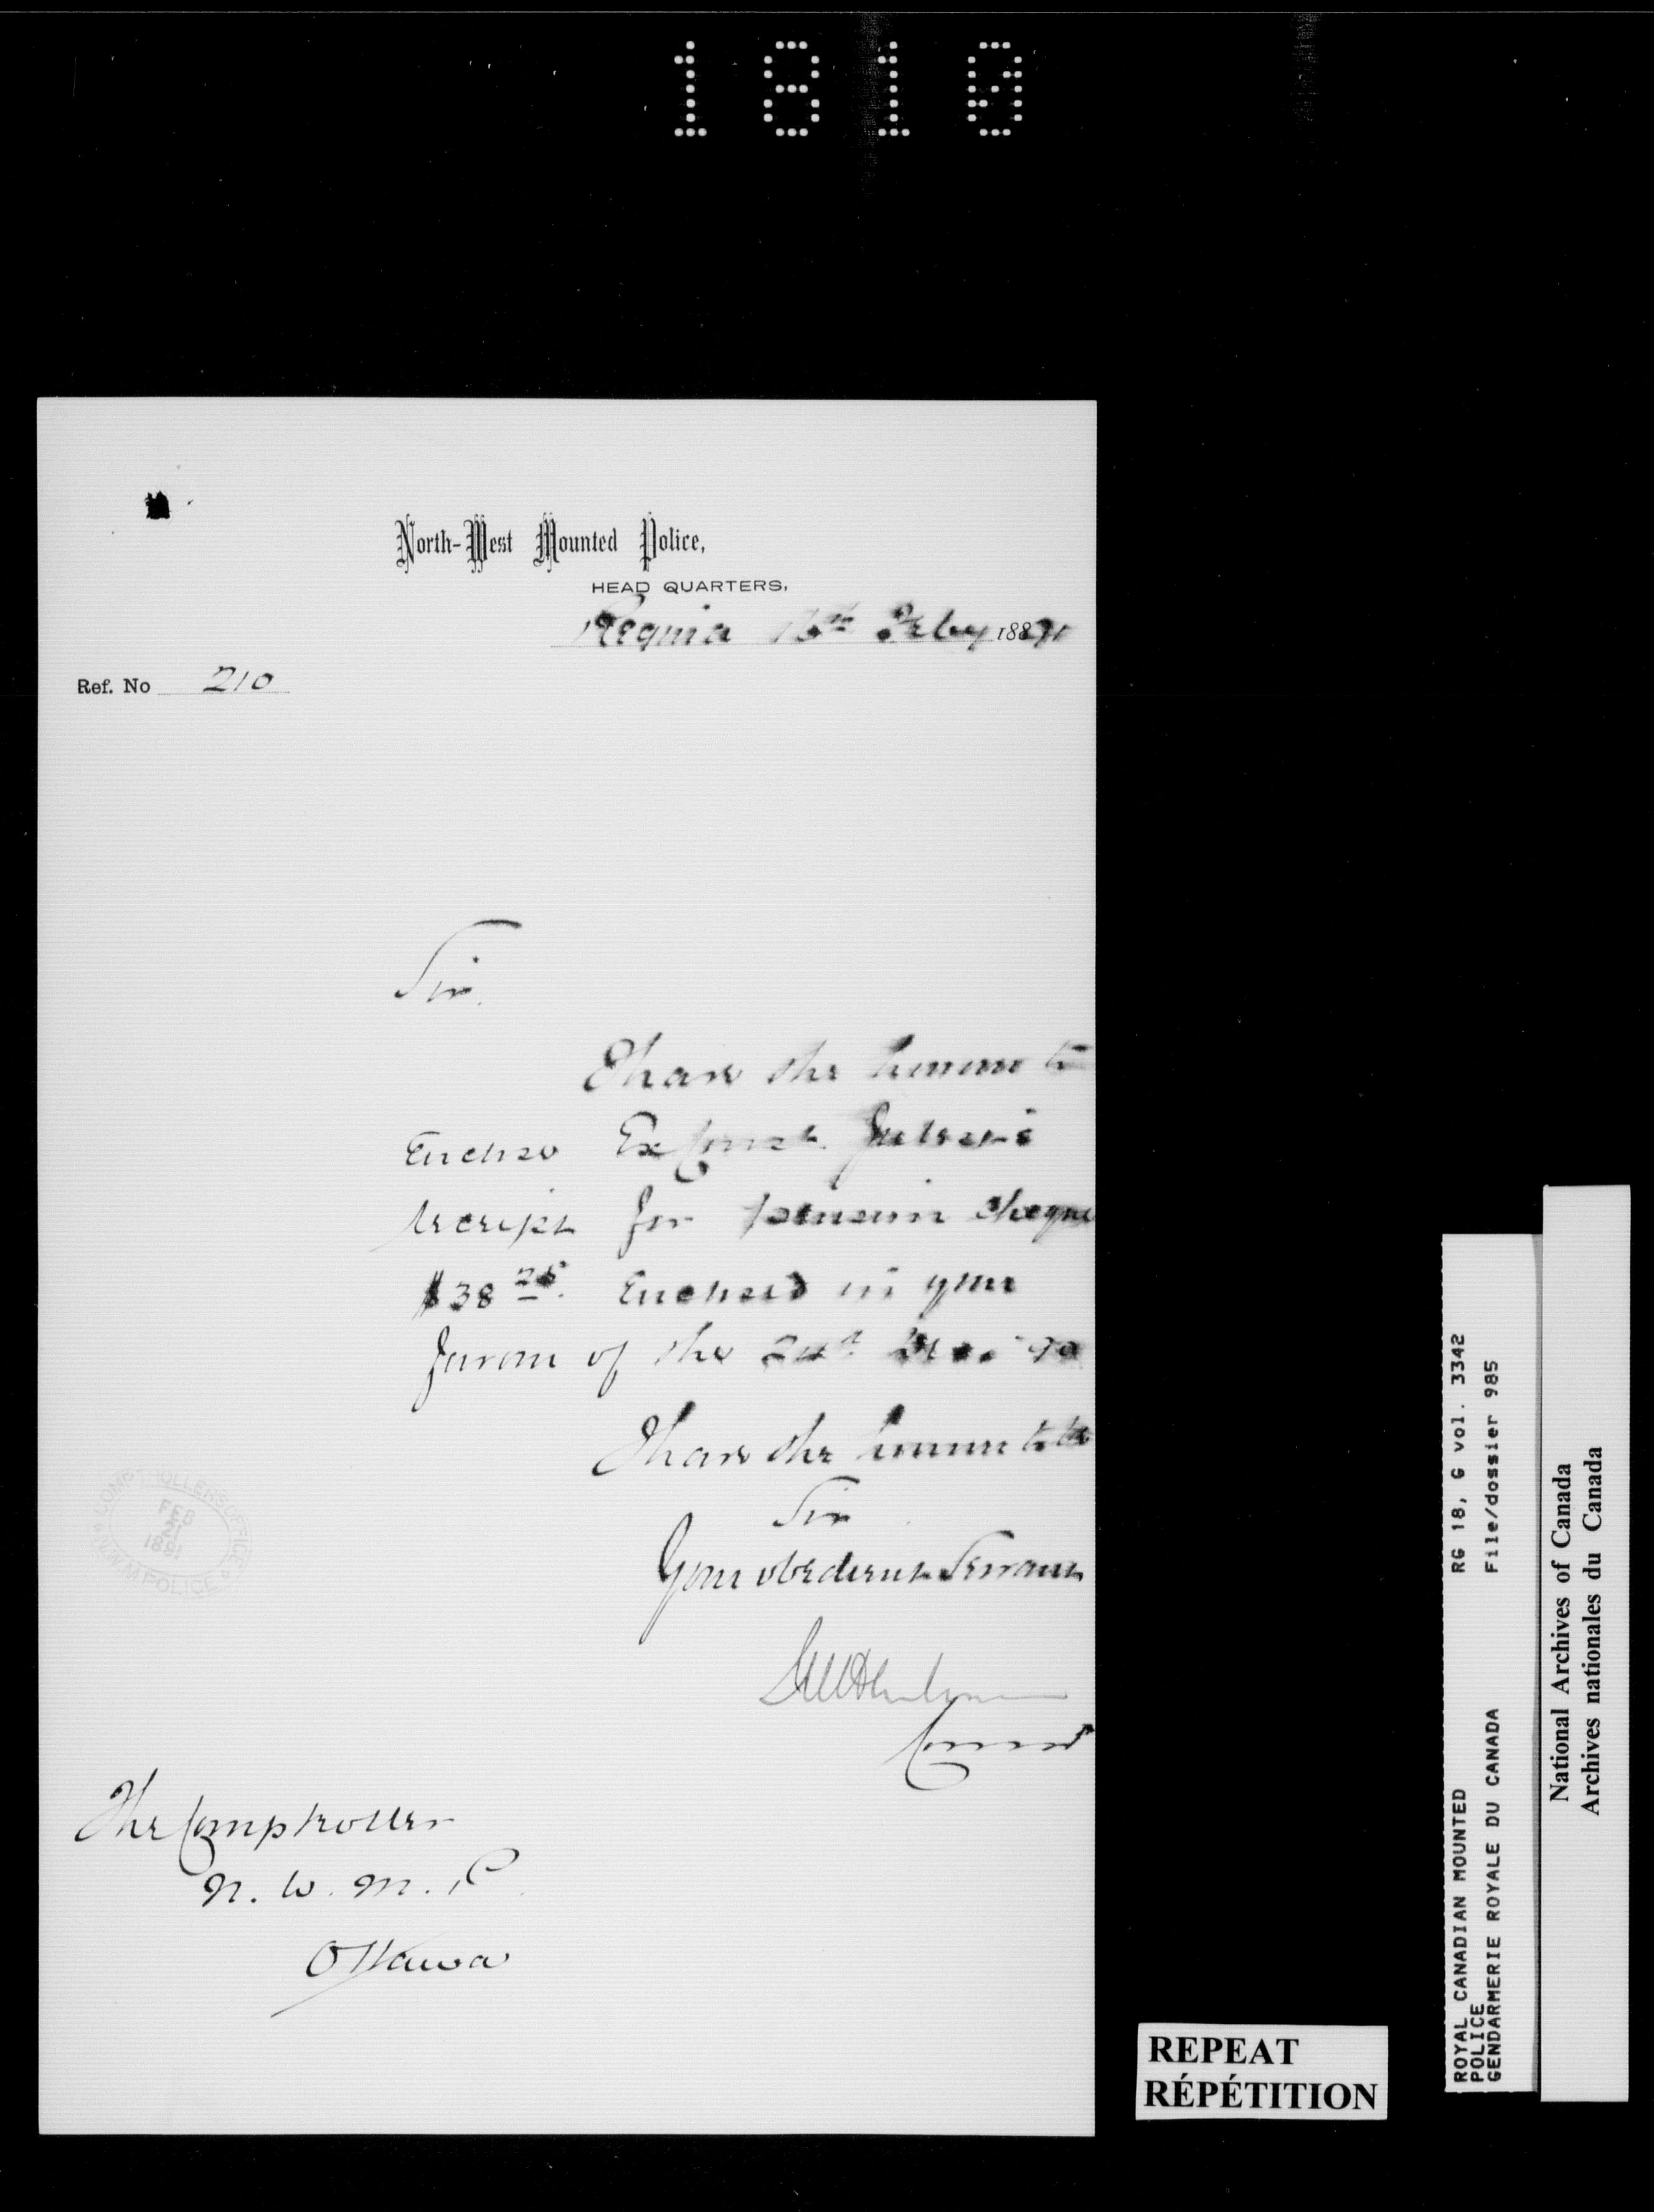 1810
North-West Mounted Police,
HEAD QUARTERS,
Regina 16th Feby 1891
Ref. No 210
Sir.
I have the honour to
Enclose Ex Const.
receipt for pension cheque
$38 25. Enclosed in your
favour of the 24th Dec. '90
I have the honour to be
Sir
Your obedient Servant
Commr
The Comptroller
N. W. M. P.
Ottawa
COMPTROLLERS OFFICE
FEB
21
1891
N.W.M POLICE
REPEAT
RÉPÉTITION
ROYAL CANADIAN MOUNTED RG 18, G vol. 3342
POLICE File/dossier 985
GENDARMERIE ROYALE DU CANADA
National Archives of Canada
Archives nationales du Canada